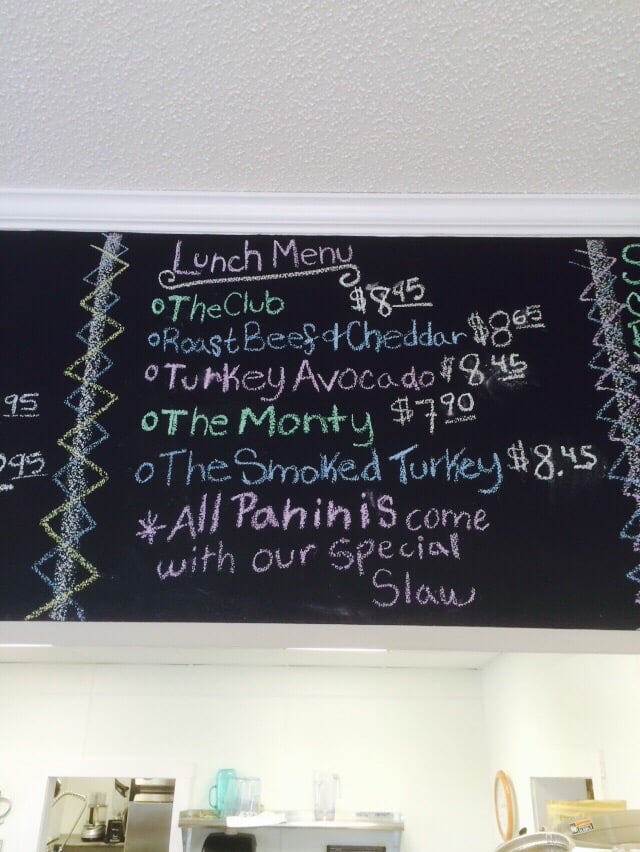 Lunch Menu
The Club $8.45
Roast Beef & Cheddar $8.65
Turkey Avocado $8.45
The Monty $7.90
The Smoked Turkey $8.45
*All Paninis come
with our special
Slaw
95
95